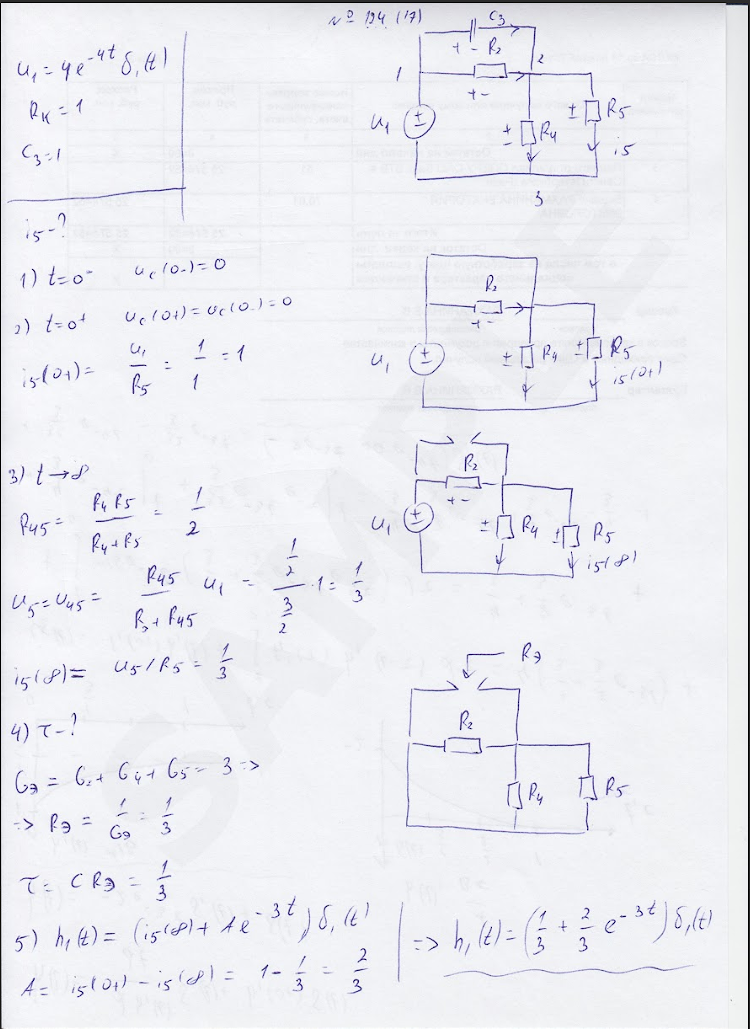 № 194 (17)
u₁ = 4e^{-4t} δ₁(t)
R_K = 1
C₃ = 1
i₅ - ?
C₃
+ -
R₂
1
2
+ -
u₁
±
±
R₄
±
R₅
i₅
3
1) t = 0⁻ u_C(0₋) = 0
2) t = 0⁺ u_C(0+) = u_C(0₋) = 0
i₅(0+) = u₁/R₅ = 1/1 = 1
R₂
+ -
u₁
±
±
R₄
±
R₅
i₅(0+)
3) t → ∞
R₄₅ = R₄R₅/(R₄ + R₅) = 1/2
u₅ = u₄₅ = R₄₅/(R₂ + R₄₅) u₁ = (1/2)/(3/2) · 1 = 1/3
i₅(∞) = u₅/R₅ = 1/3
R₂
+ -
u₁
±
±
R₄
±
R₅
i₅(∞)
4) τ - ?
Gэ = G₂ + G₄ + G₅ = 3 =>
=> Rэ = 1/Gэ = 1/3
τ = C Rэ = 1/3
Rэ
R₂
R₄
R₅
5) h₁(t) = (i₅(∞) + Ae^{-3t}) δ₁(t)
A = i₅(0+) - i₅(∞) = 1 - 1/3 = 2/3
=> h₁(t) = (1/3 + 2/3 e^{-3t}) δ₁(t)
SAMPLE